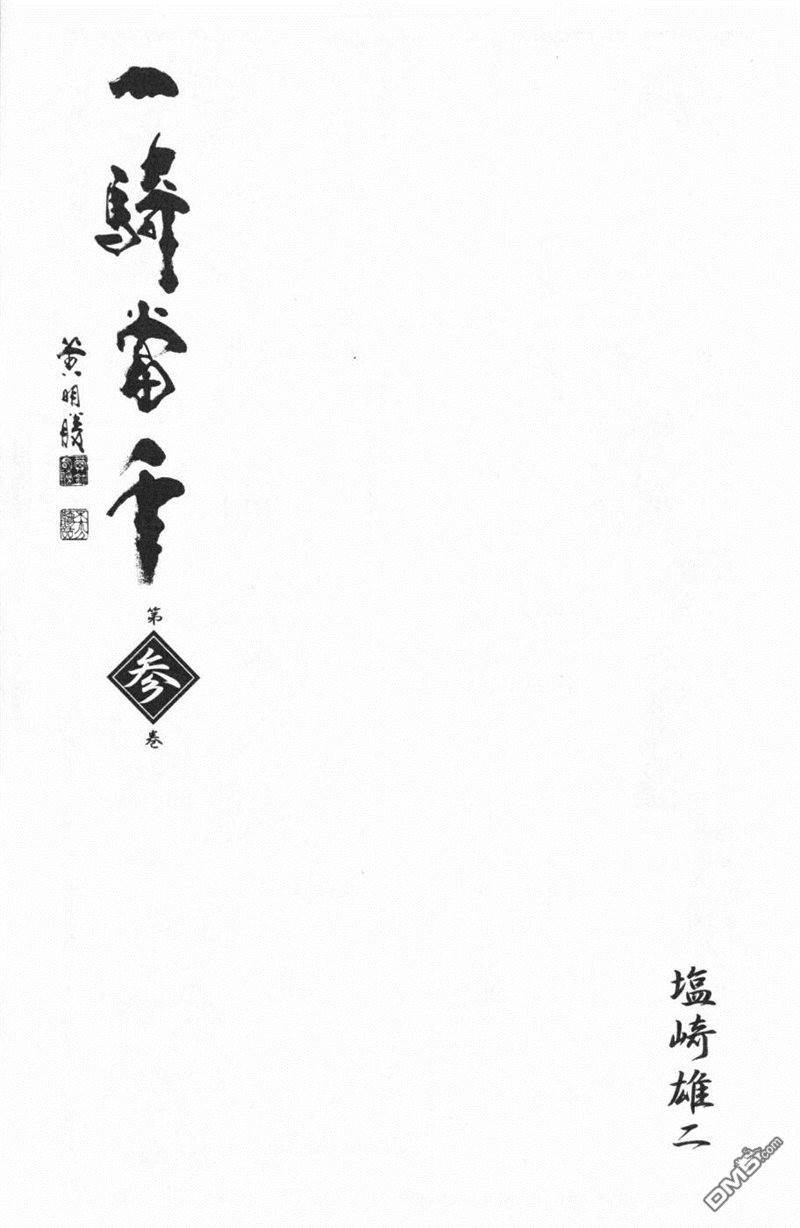 塩崎雄二
一騎當千
第
参
巻
黄明勝
DM5.com